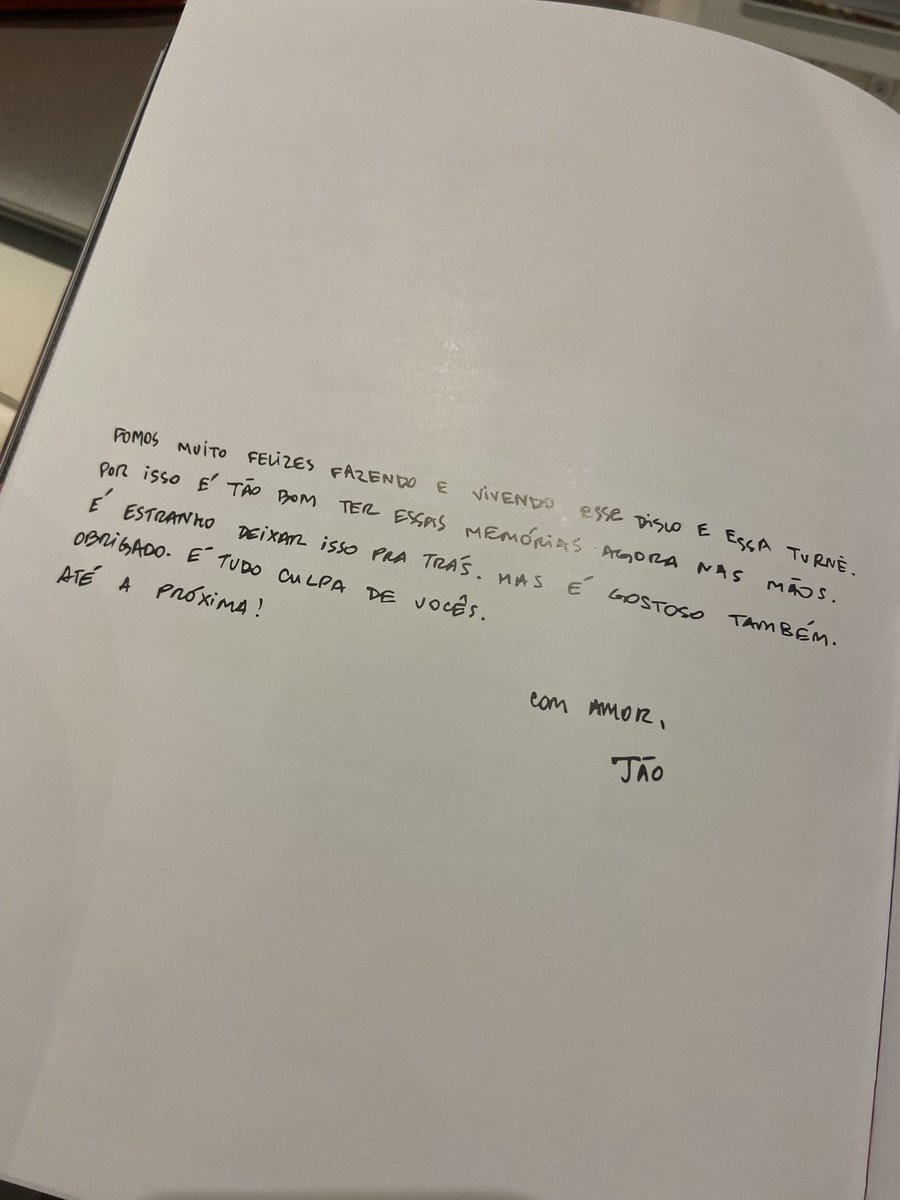 FOMOS MUITO FELIZES FAZENDO E VIVENDO ESSE DISCO E ESSA TURNÊ.
POR ISSO É TÃO BOM TER ESSAS MEMÓRIAS AGORA NAS MÃOS.
É ESTRANHO DEIXAR ISSO PRA TRÁS. MAS É GOSTOSO TAMBÉM.
OBRIGADO. É TUDO CULPA DE VOCÊS.
ATÉ A PRÓXIMA!
COM AMOR,
JÃO